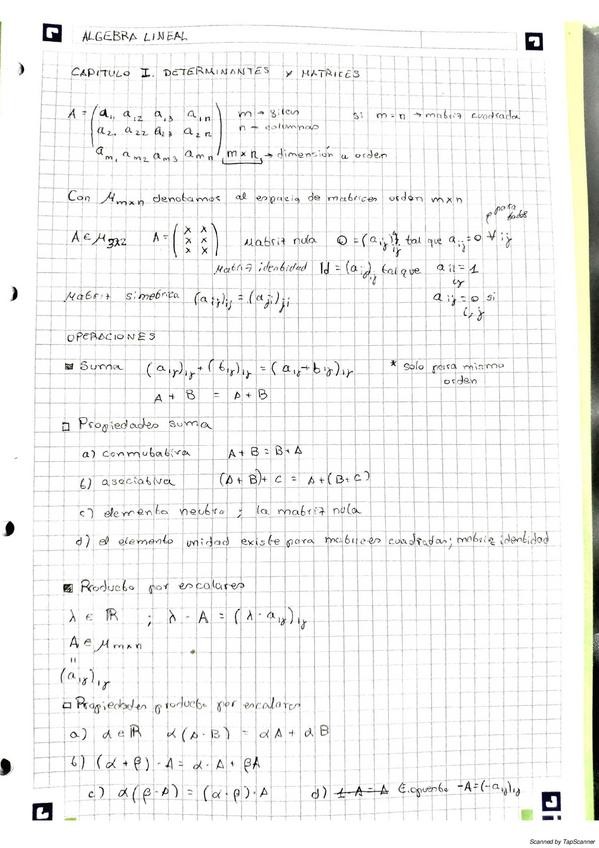 ALGEBRA LINEAL
CAPITULO I. DETERMINANTES Y MATRICES
A = (a₁₁ a₁₂ a₁₃ a₁ₙ m → filas si m=n → matriz cuadrada
a₂₁ a₂₂ a₂₃ a₂ₙ n → columnas
aₘ₁ aₘ₂ aₘ₃ aₘₙ) m×n → dimensión u orden
Con Mₘₓₙ denotamos al espacio de matrices orden m×n
para todos
A ∈ M₃ₓ₂ A = (x x
x x
x x) Matriz nula O = (aᵢⱼ)ᵢⱼ tal que aᵢⱼ = 0 ∀ ij
Matriz identidad Id = (aᵢⱼ)ᵢⱼ tal que aᵢᵢ = 1
Matriz simetrica (aᵢⱼ)ᵢⱼ = (aⱼᵢ)ⱼᵢ aᵢⱼ = 0 si
i, j
OPERACIONES
Suma (aᵢⱼ)ᵢⱼ + (bᵢⱼ)ᵢⱼ = (aᵢⱼ + bᵢⱼ)ᵢⱼ * solo para mismo
orden
A + B = A + B
Propiedades suma
a) conmubativa A + B = B + A
b) asociativa (A + B) + C = A + (B + C)
c) elemento neutro ; la matriz nula
d) el elemento unidad existe para matrices cuadradas; matriz identidad
Producto por escalares
λ ∈ ℝ ; λ · A = (λ · aᵢⱼ)ᵢⱼ
A ∈ Mₘₓₙ
=
(aᵢⱼ)ᵢⱼ
Propiedades producto por escalares
a) α ∈ ℝ α(A · B) = αA + αB
b) (α + β) · A = α · A + βA
c) α(β · A) = (α · β) · A d) 1 · A = A -A = (-aᵢⱼ)ᵢⱼ
Scanned by TapScanner